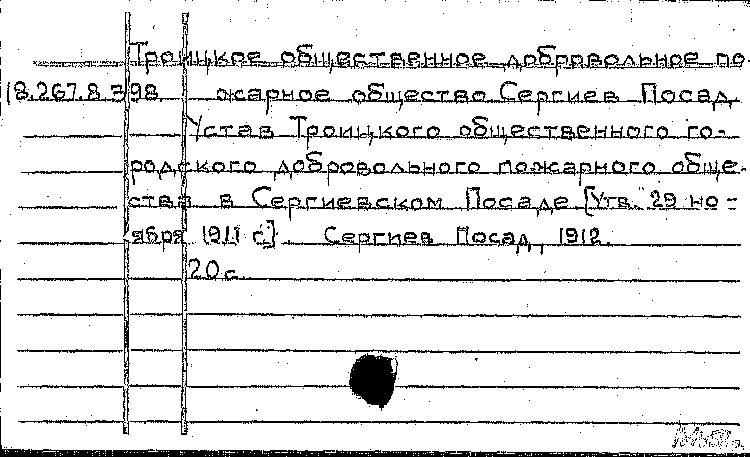 Троицкое общественное добровольное по-
18.267.8.398 жарное общество Сергиев Посад
Устав Троицкого общественного го-
родского добровольного пожарного обще-
ства в Сергиевском Посаде [Утв. 29 но-
ября 1911 г.]. Сергиев Посад, 1912.
20 с.